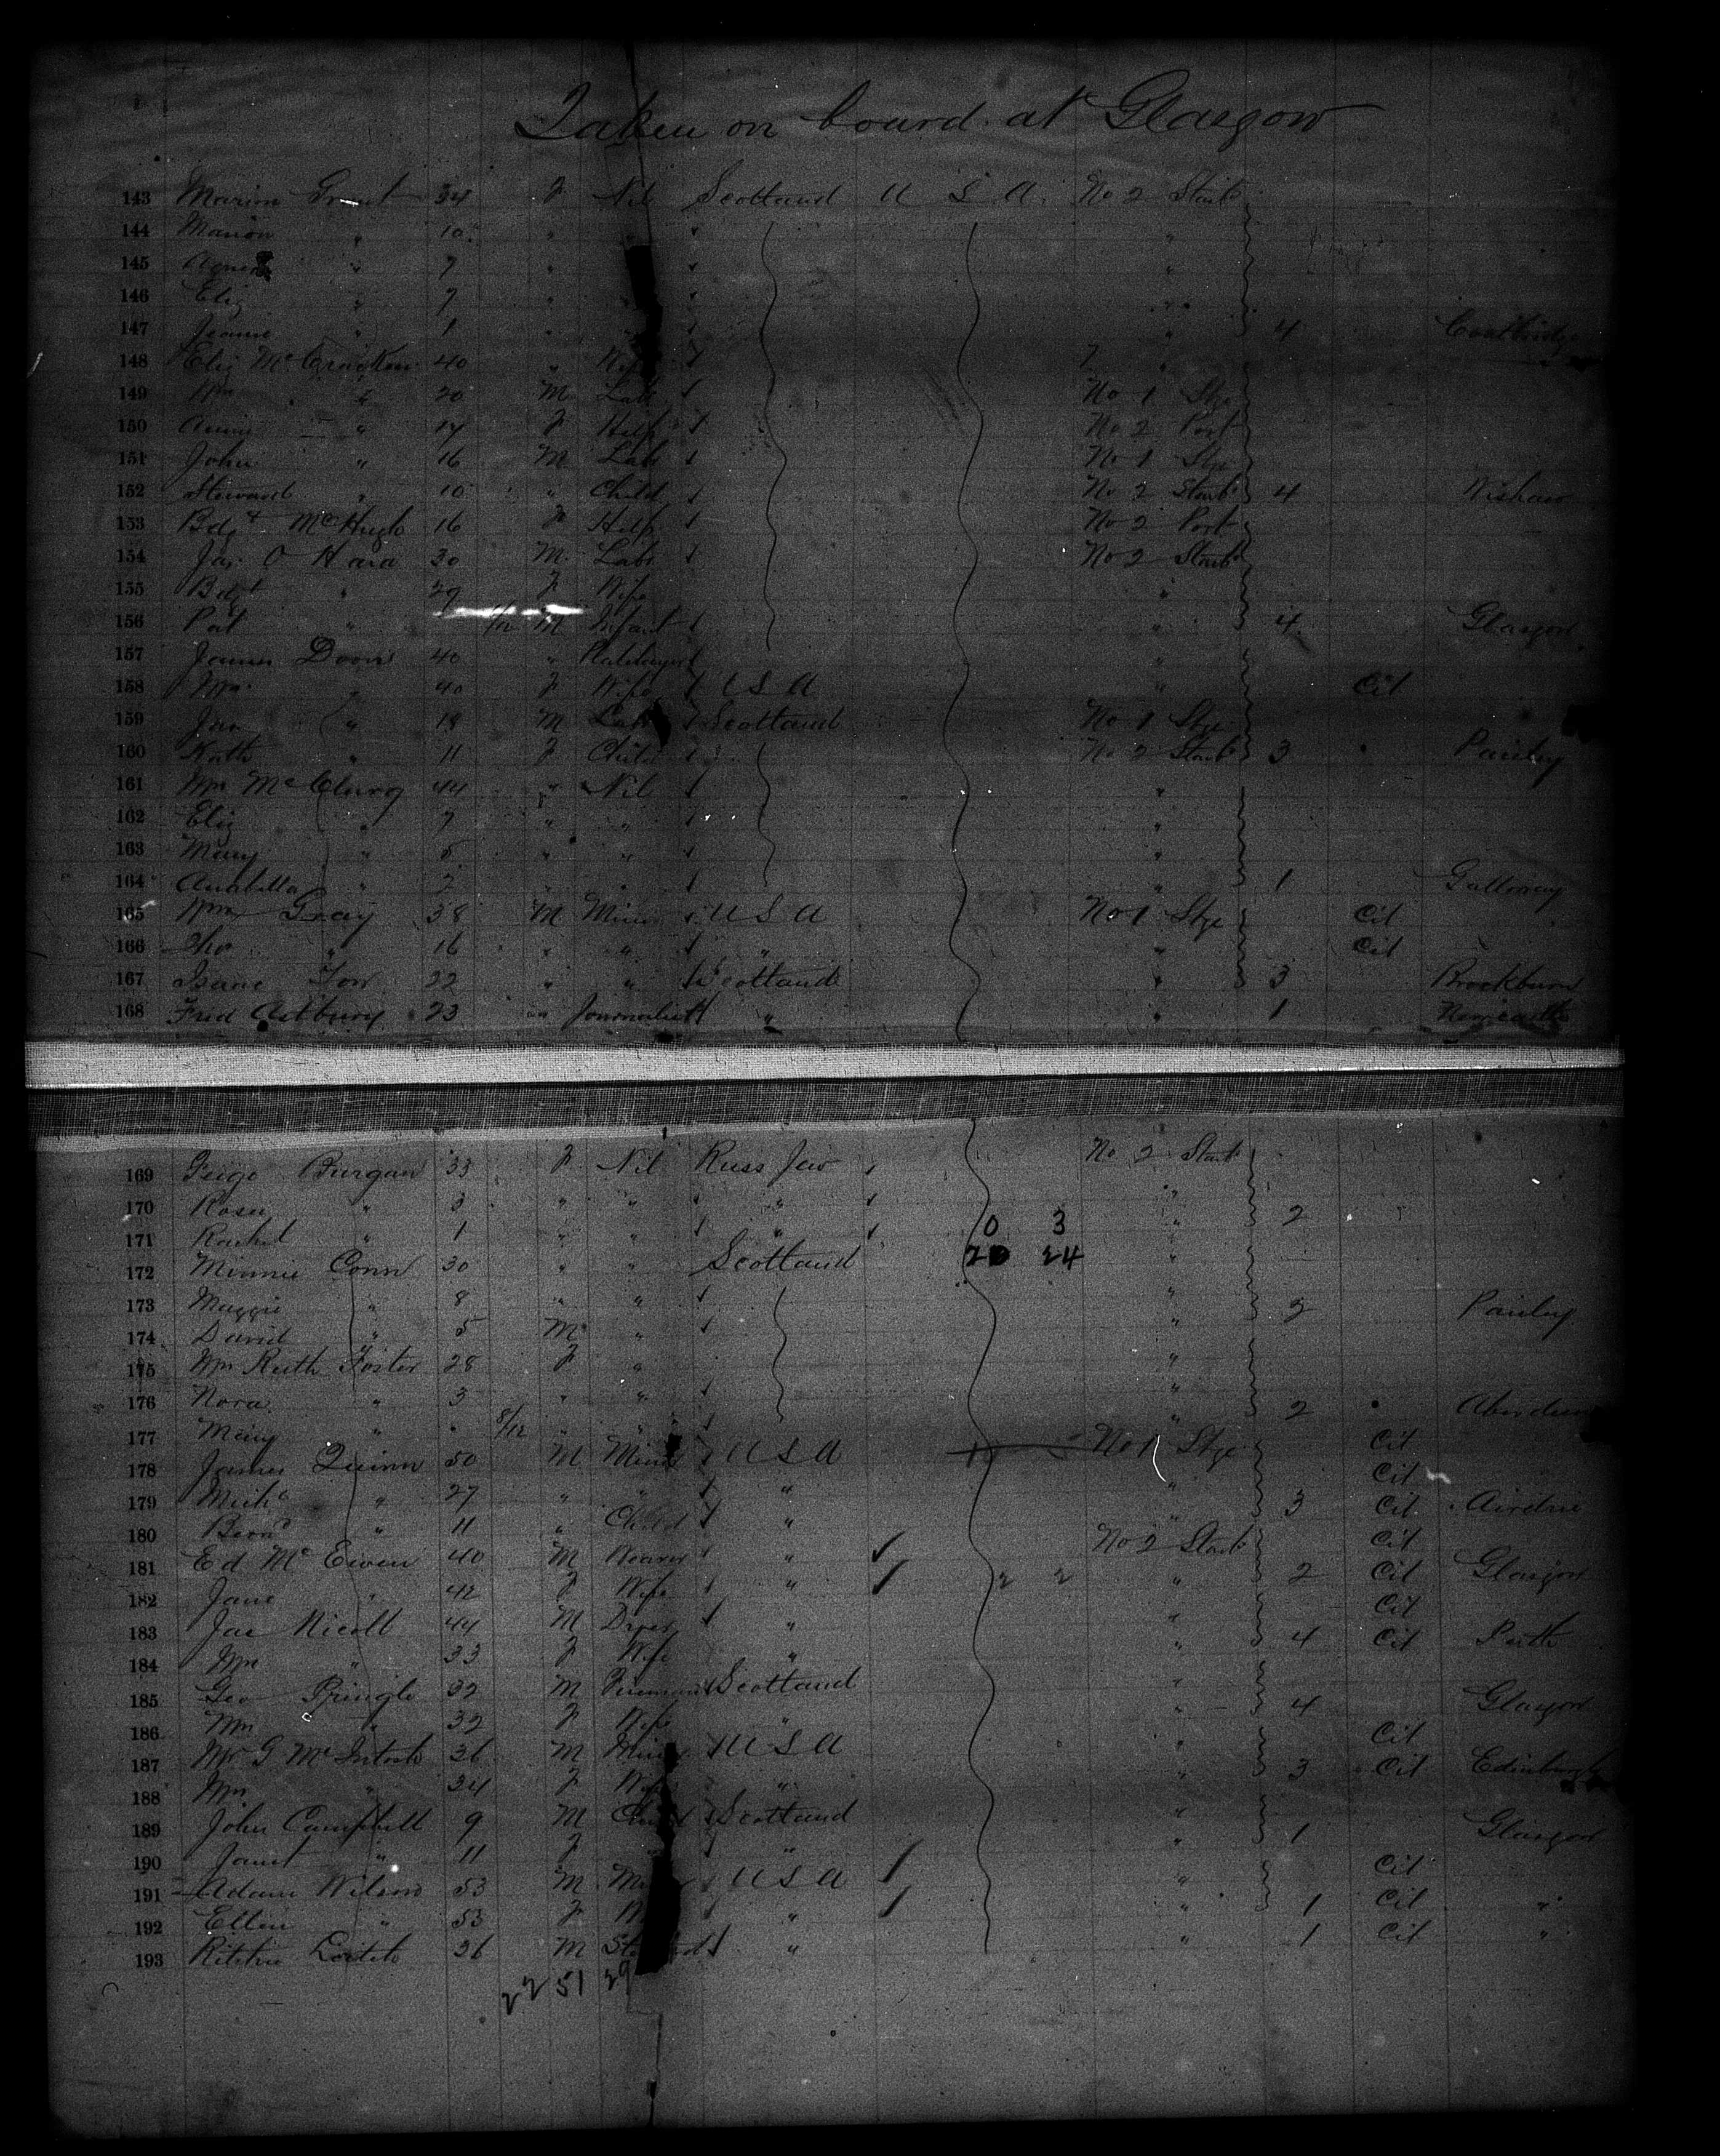 Taken on board at Glasgow
143 Marion Grant 34 F Nil Scotland U S A. No 2 Starb
144 Marion " 10 " " "
145 Agnes " 7 "
146 Eliz " 7 " "
147 Jeanie " 1 " " 4 Coatbridge
148 Eliz McCracken 40 "
149 Wm " 20 M Labr No 1 Stge
150 Annie " 17 F Help No 2 Port
151 John " 16 M Labr No 1 Stge
152 Steward " 10 " Child No 2 Starb 4 Wishaw
153 Bdgt McHugh 16 F Help No 2 Port
154 Jas. O Hara 30 M. Labr No 2 Starb
155 Bdgt " 29 F Wife "
156 Pat " /12 M Infant " 4 Glasgow
157 James 40 " "
158 " 40 F Wife U S A " Cit
159 Jas " 18 M Labr Scotland No 1 Stge
160 Kath " 11 F Child No 2 Starb 3 Paisley
161 McClurg 44 " Nil "
162 Eliz " 7 " " "
163 Mary " 5 " " "
164 Anabella " 2 " " " 1 Galloway
165 Wm Gray 38 M Miner U S A No 1 Stge Cit
166 Tho " 16 " " " " Cit
167 Isaac 22 " " Scotland " 3
168 Fred Astbury 23 " Journalist " " 1 Newcastle
169 Feige Burgan 33 F Nil Russ Jew No 2 Starb
170 " 3 " " " "
171 Rachel " 1 " " " 0 3 " 2
172 Minnie Conn 30 " " Scotland 20 24 "
173 Maggie " 8 " " "
174 David " 5 M " " 2 Paisley
175 Ruth Foster 28 F " "
176 Nora " 3 " " "
177 Mary " " 8/12 " " " 2 Aberdeen
178 James Quinn 50 M Miner U S A No 1 Stge Cit
179 Michl " 27 " " " " Cit
180 Bernd " 11 " Child " " 3 Cit Airdrie
181 Ed McEwen 40 M Weaver " No 2 Starb Cit
182 Jane " 42 F Wife " 2 2 " 2 Cit Glasgow
183 Jas Nicoll 44 M Dyer " " Cit
184 " 33 F Wife " " 4 Cit Perth
185 Geo Pringle 32 M Fireman Scotland "
186 " 32 F Wife " " 4 Glasgow
187 Mr G McIntosh 36 M Miner U S A " Cit
188 " 34 F Wife " " 3 Cit Edinburgh
189 John Campbell 9 M Child Scotland "
190 Janet " 11 F " " " 1 Glasgow
191 Adam Wilson 53 M U S A " Cit
192 Ellen " 53 F " " 1 Cit "
193 Ritchie Leitch 36 M " " 1 Cit "
22 51 29